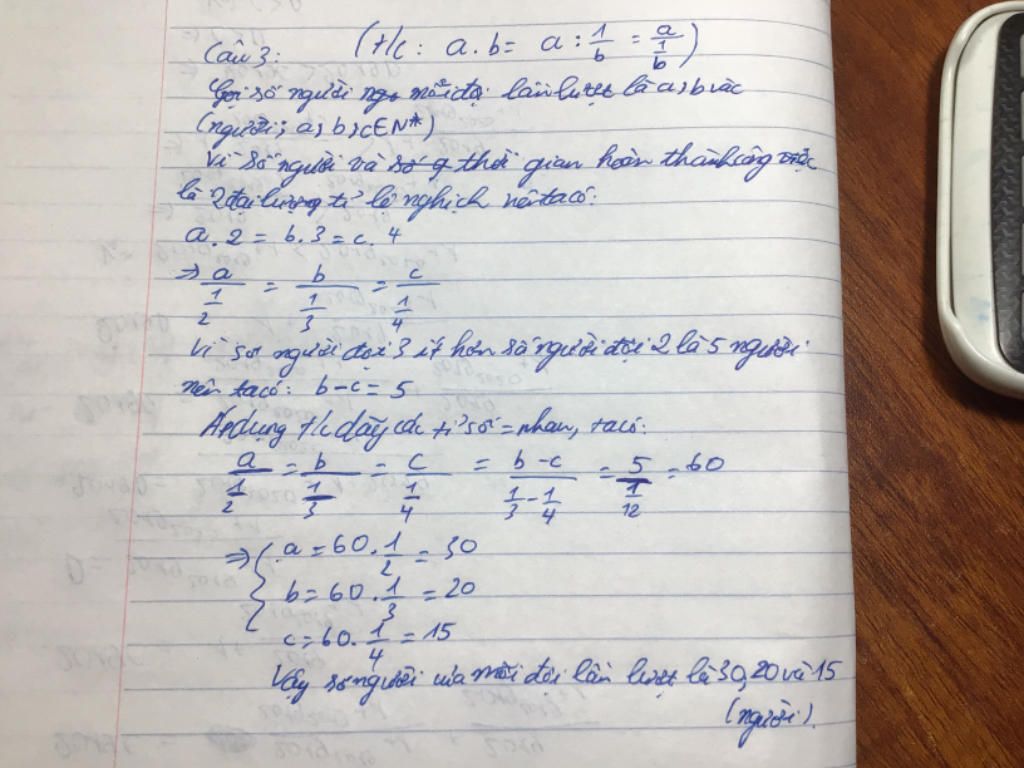 Câu 3: (t/c: a.b = a : 1/b = a/(1/b))
Gọi số người ngo mỗi đội lần lượt là a, b và c
(người; a, b, c ∈ N*)
Vì số người và số g thời gian hoàn thành công việc
là 2 đại lượng tỉ lệ nghịch nên ta có:
a.2 = b.3 = c.4
=> a/(1/2) = b/(1/3) = c/(1/4)
Vì số người đội 3 ít hơn số người đội 2 là 5 người
nên ta có: b-c = 5
Áp dụng t/c dãy các tỉ số = nhau, ta có:
a/(1/2) = b/(1/3) = c/(1/4) = (b-c)/(1/3 - 1/4) = 5/(1/12) = 60
=> { a = 60 . 1/2 = 30
b = 60 . 1/3 = 20
c = 60 . 1/4 = 15
Vậy số người của mỗi đội lần lượt là 30, 20 và 15
(người).